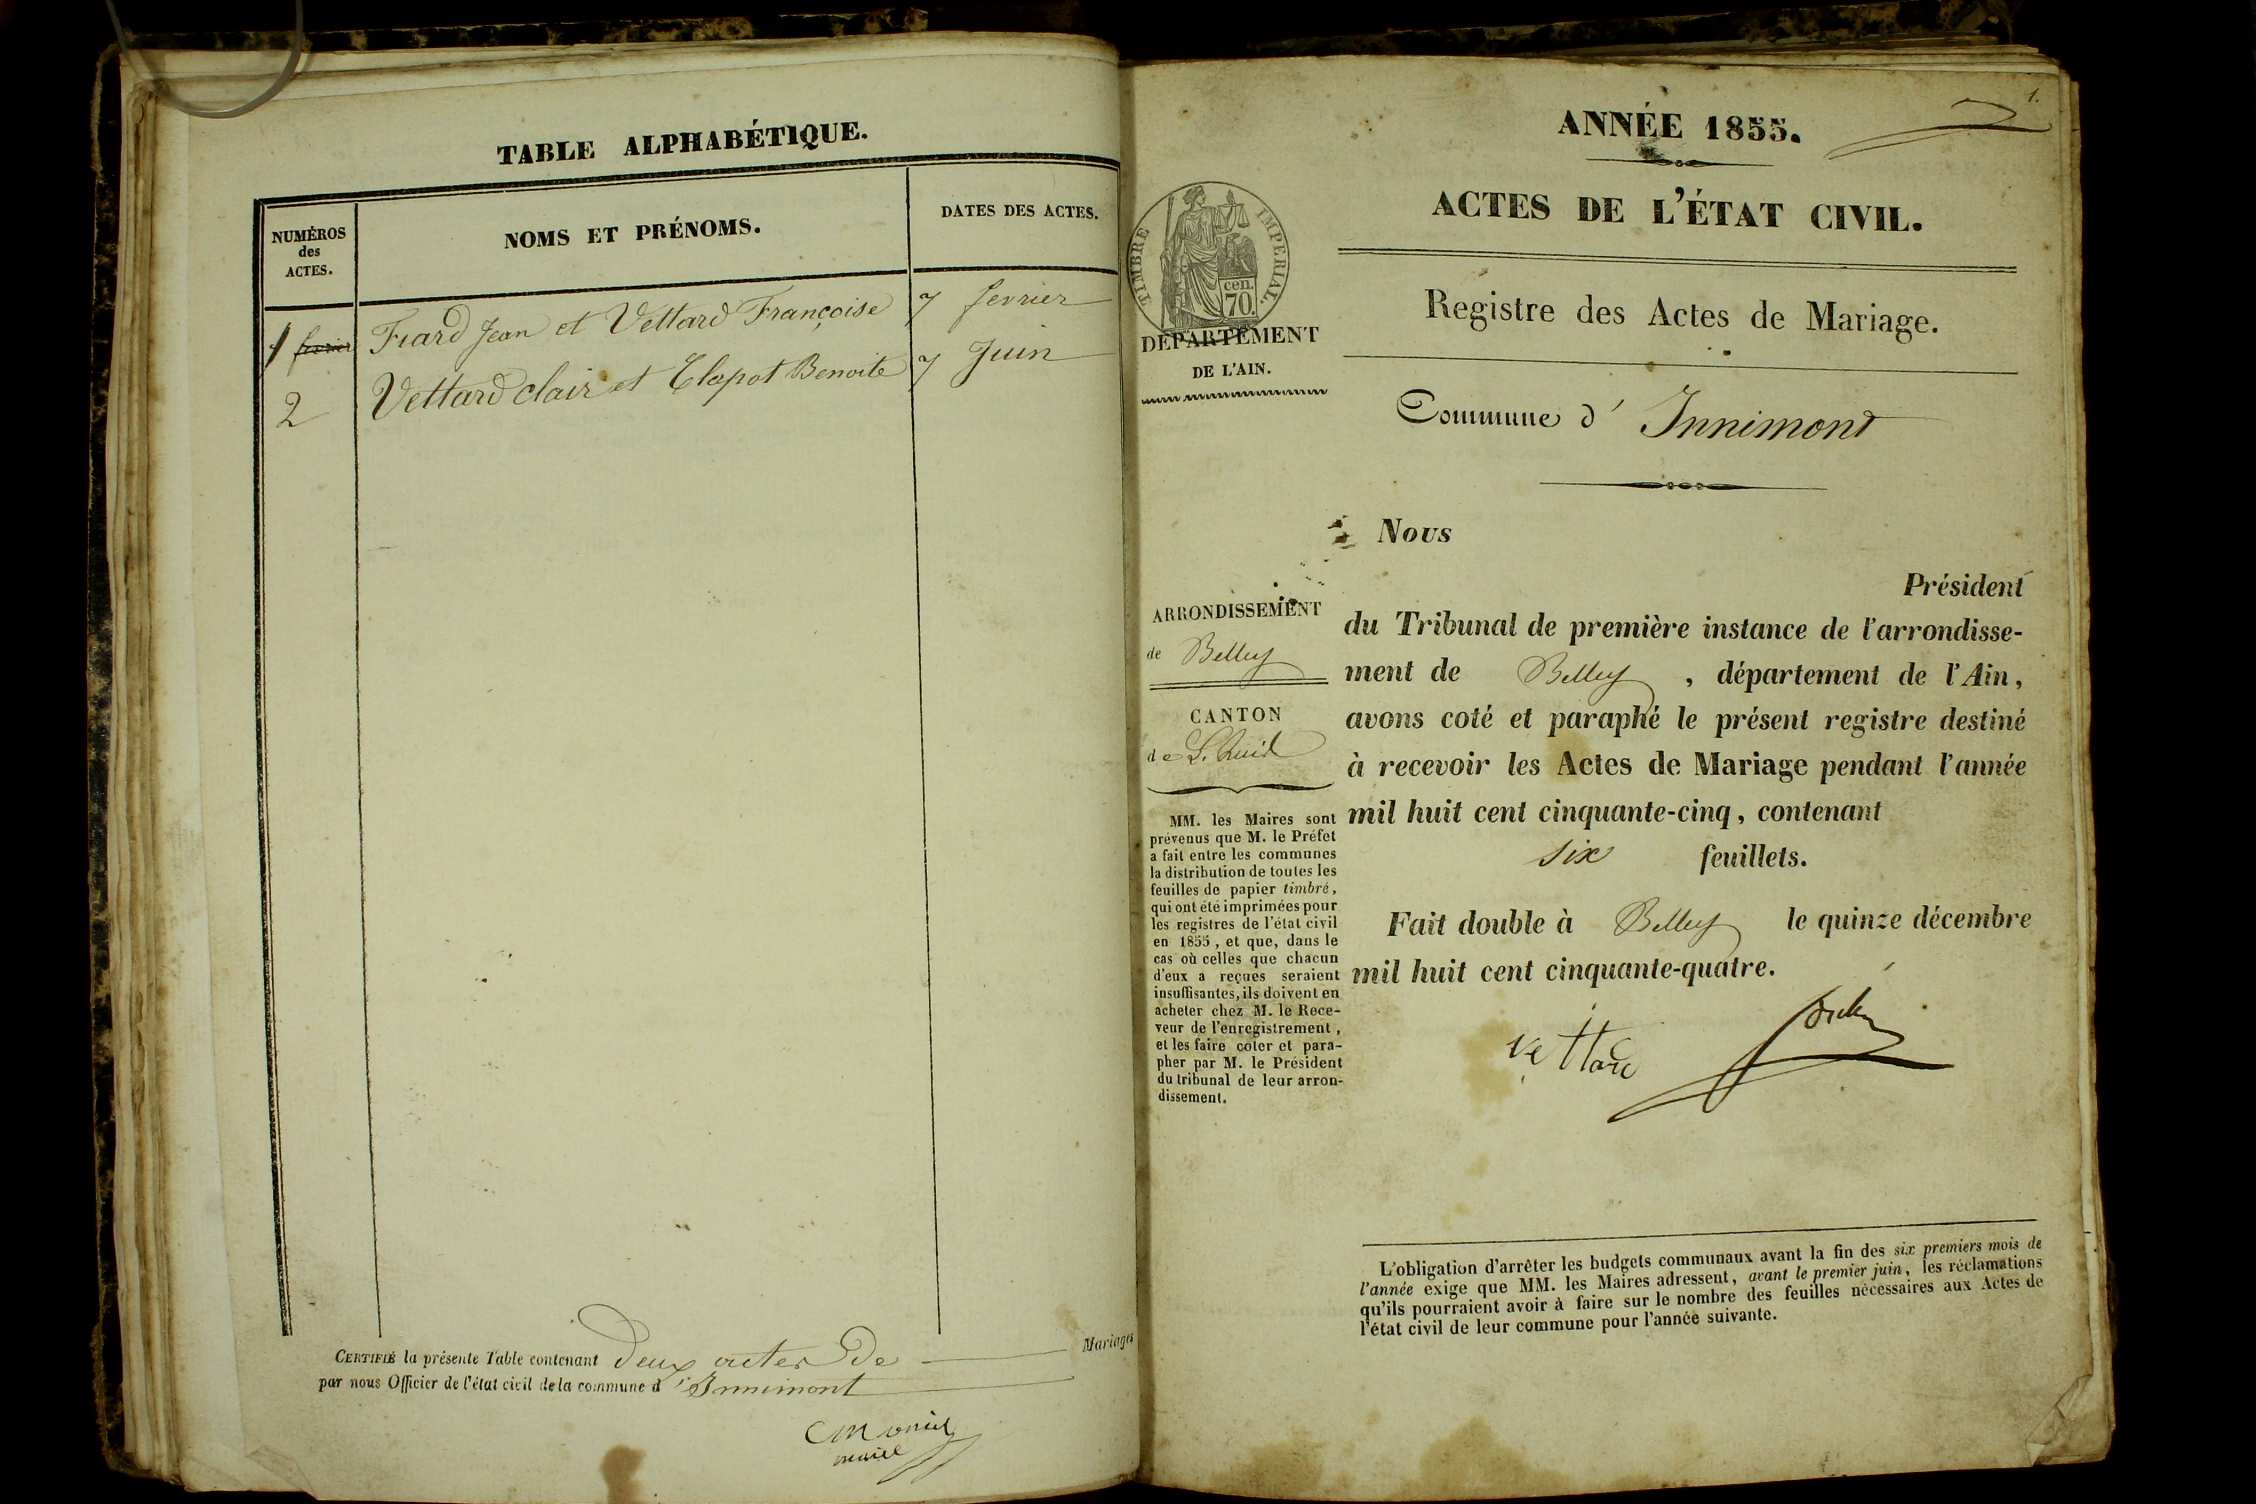 TABLE ALPHABÉTIQUE.
NUMÉROS
des
ACTES.
NOMS ET PRÉNOMS.
DATES DES ACTES.
1 Fiard Jean et Vettard Françoise 7 fevrier
2 Vettard clair et Clapot Benoite 7 Juin
CERTIFIÉ la présente Table contenant deux actes de Mariages
par nous Officier de l'état civil de la commune d'Innimont
maire
1.
ANNÉE 1855.
ACTES DE L'ÉTAT CIVIL.
TIMBRE IMPERIAL.
cen.
70.
DÉPARTEMENT
DE L'AIN.
Registre des Actes de Mariage.
Commune d' Innimont
ARRONDISSEMENT
de Belley
CANTON
de L'huis
MM. les Maires sont
prévenus que M. le Préfet
a fait entre les communes
la distribution de toutes les
feuilles de papier timbré,
qui ont été imprimées pour
les registres de l'état civil
en 1855, et que, dans le
cas où celles que chacun
d'eux a reçues seraient
insuffisantes, ils doivent en
acheter chez M. le Rece-
veur de l'enregistrement,
et les faire coter et para-
pher par M. le Président
du tribunal de leur arron-
dissement.
Nous
Président
du Tribunal de première instance de l'arrondisse-
ment de Belley, département de l'Ain,
avons coté et paraphé le présent registre destiné
à recevoir les Actes de Mariage pendant l'année
mil huit cent cinquante-cinq, contenant
six feuillets.
Fait double à Belley le quinze décembre
mil huit cent cinquante-quatre.
vettard
L'obligation d'arrêter les budgets communaux avant la fin des six premiers mois de
l'année exige que MM. les Maires adressent, avant le premier juin, les réclamations
qu'ils pourraient avoir à faire sur le nombre des feuilles nécessaires aux Actes de
l'état civil de leur commune pour l'année suivante.